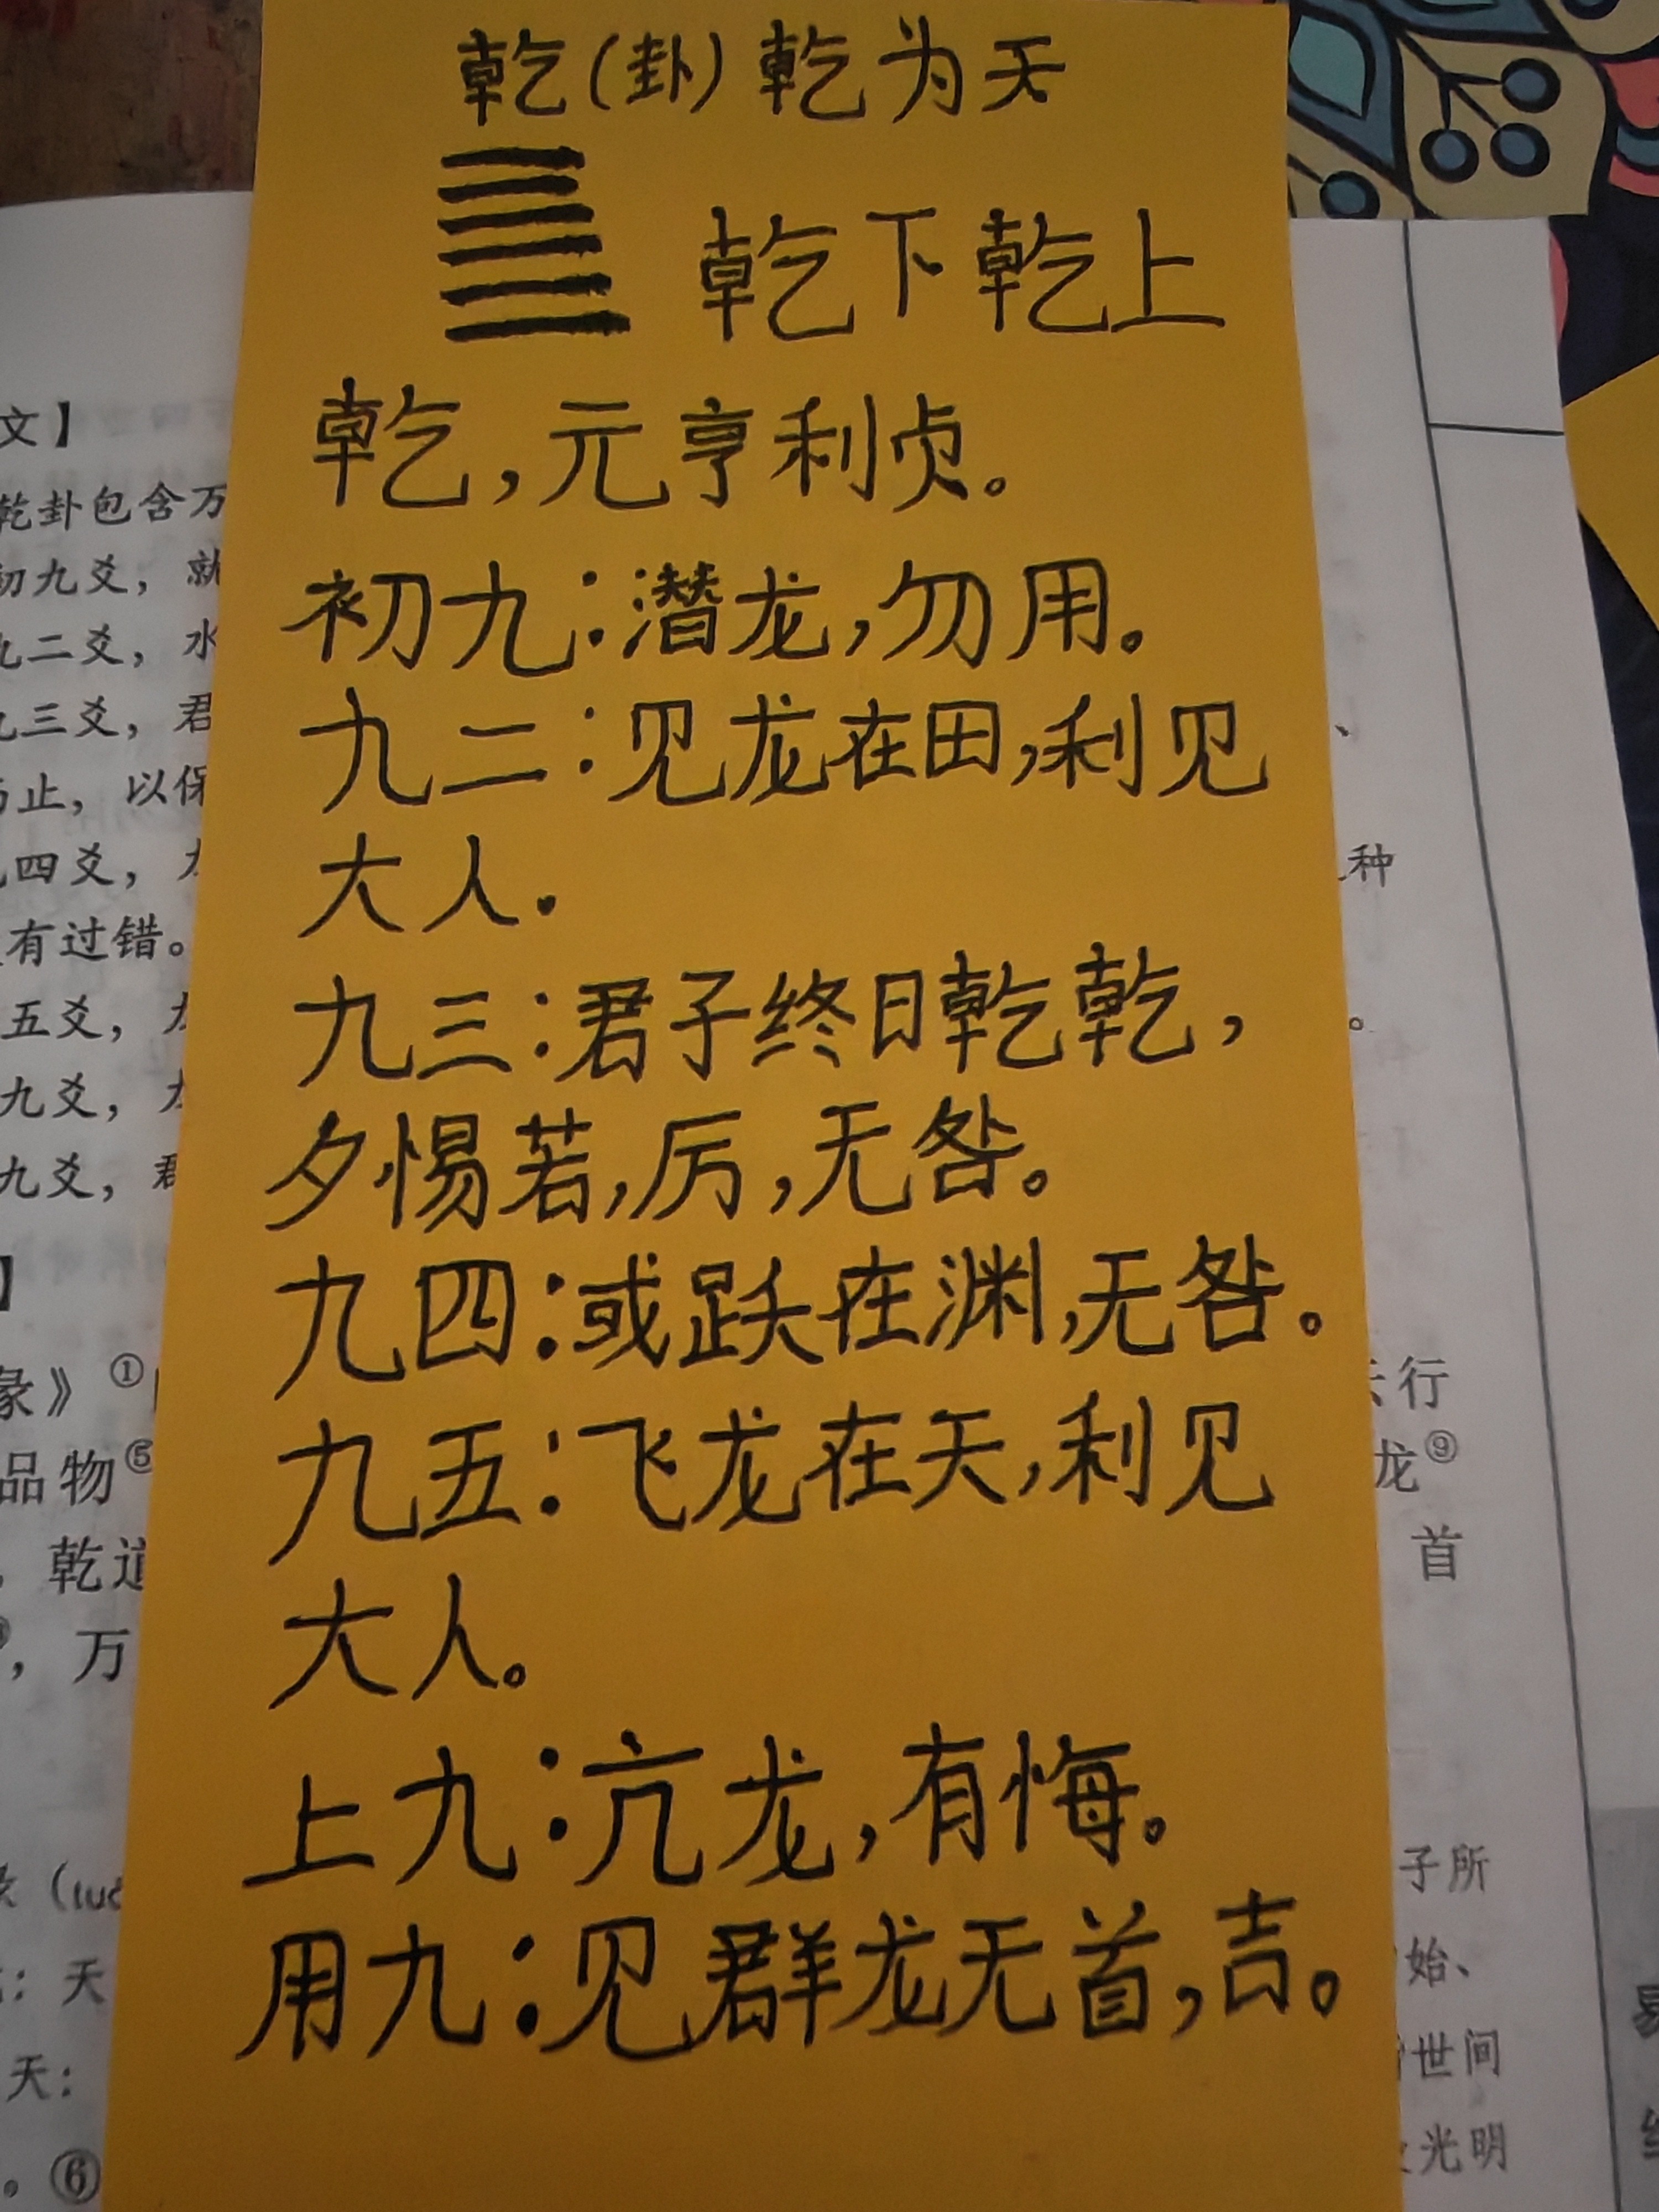 乾(卦)乾为天
乾下乾上
乾,元亨利贞。
初九:潜龙,勿用。
九二:见龙在田,利见
大人.
九三:君子终日乾乾,
夕惕若,厉,无咎。
九四:或跃在渊,无咎。
九五:飞龙在天,利见
大人。
上九:亢龙,有悔。
用九:见群龙无首,吉。
文】
乾卦包含万
初九爻，就
九二爻，水
九三爻，君
止，以保
四爻，
有过错。
五爻，
九爻，
九爻，君
】
彖》①
品物⑤
，乾道
，万
：天
天：
。⑥
、
种
。
行
龙⑨
首
子所
始、
世间
光明